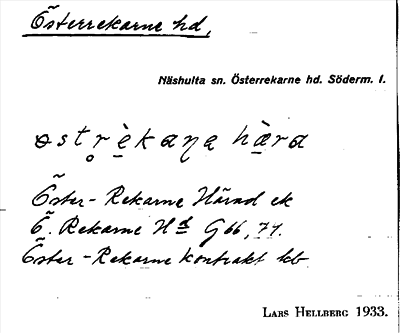 Österrekarne hd,
Näshulta sn. Österrekarne hd. Söderm. l.
ɵstr̥èkaƞa hæ̀ra
Öster-Rekarne Härad ek
Ö. Rekarne Hd G66, 77.
Öster-Rekarne kontrakt kb
LARS HELLBERG 1933.